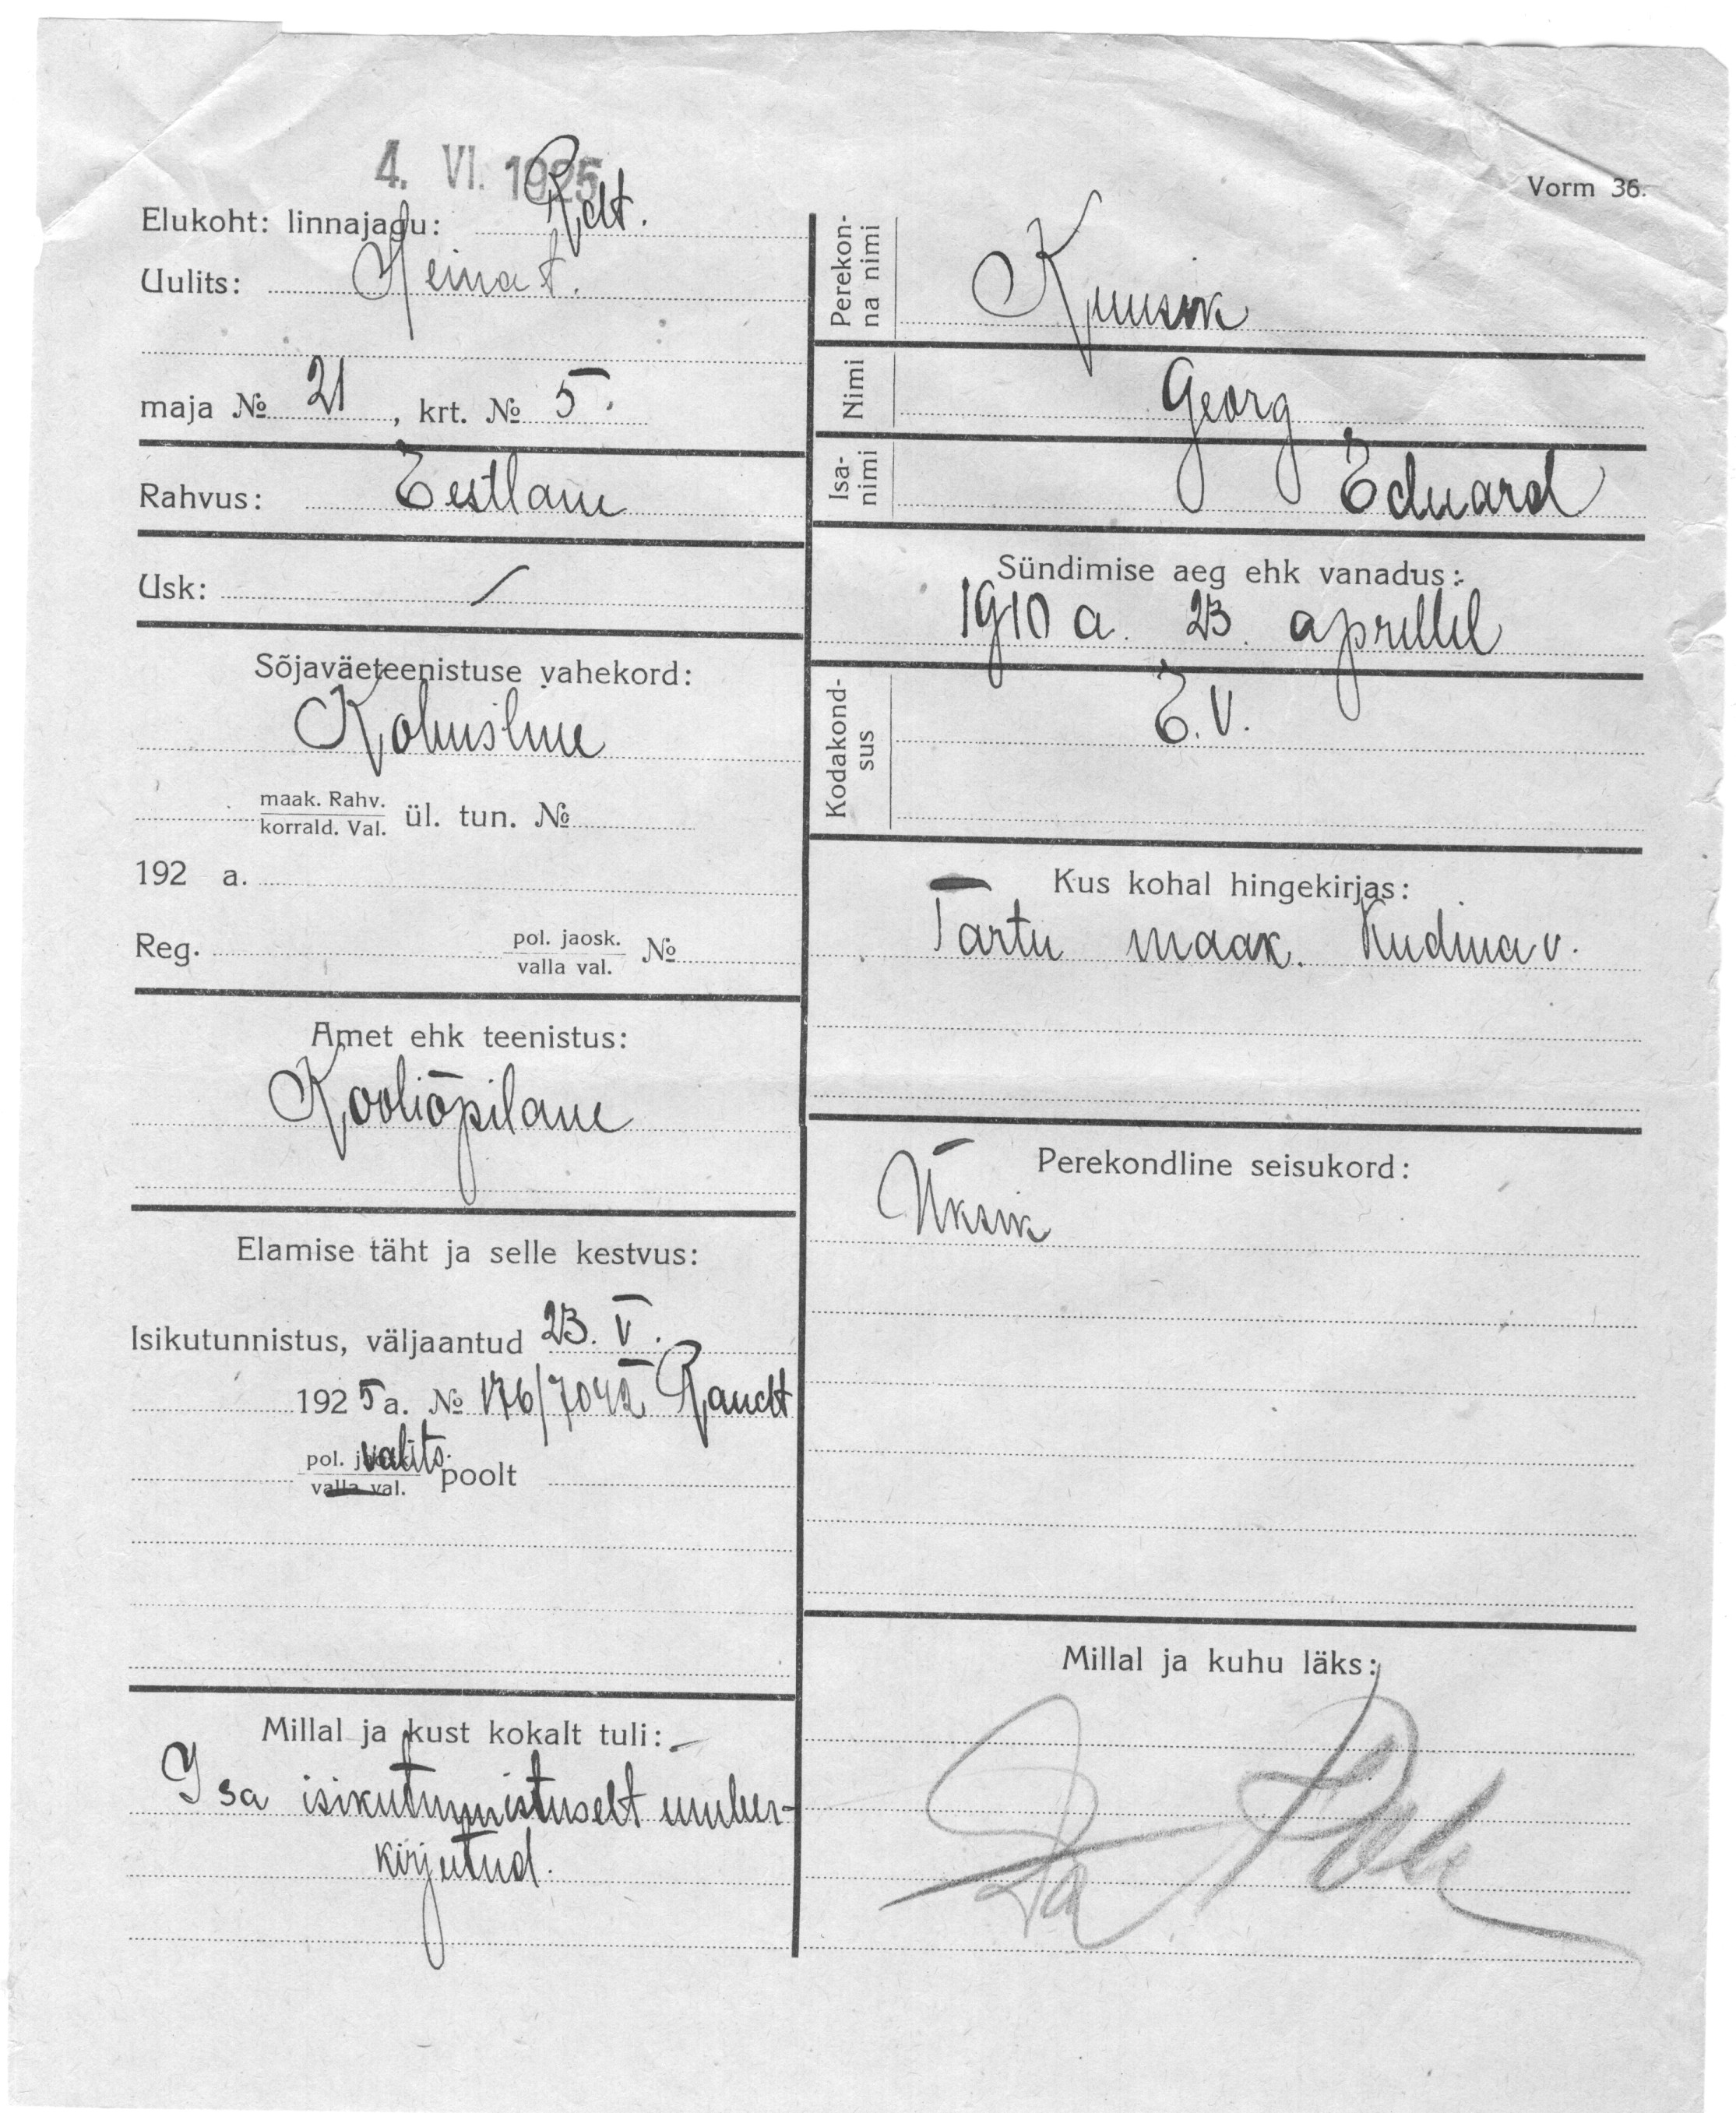 4. VI. 1925
Vorm 36.
Elukoht: linnajagu: Rdt.
Uulits: Heina t.
maja № 21, krt. № 5.
Rahvus: Eestlane
Usk: /
Sõjaväeteenistuse vahekord:
Kohusline
maak. Rahv.
korrald. Val. ül. tun. №
192 a.
Reg. pol. jaosk. №
valla val.
Amet ehk teenistus:
Kooliõpilane
Elamise täht ja selle kestvus:
Isikutunnistus, väljaantud 23. V.
1925 a. № 176/7042 Raudt
pol. valits. poolt
valla val.
Millal ja kust kokalt tuli:
Isa isikutunnistuselt ümber-
kirjutud.
Perekon-
na nimi
Kuusik
Nimi Georg
Isa-
nimi
Eduard
Sündimise aeg ehk vanadus:
1910 a. 23. aprillil
Kodakond-
sus
E.V.
Kus kohal hingekirjas:
Tartu maak. Kudina v.
Perekondline seisukord:
Üksik
Millal ja kuhu läks: